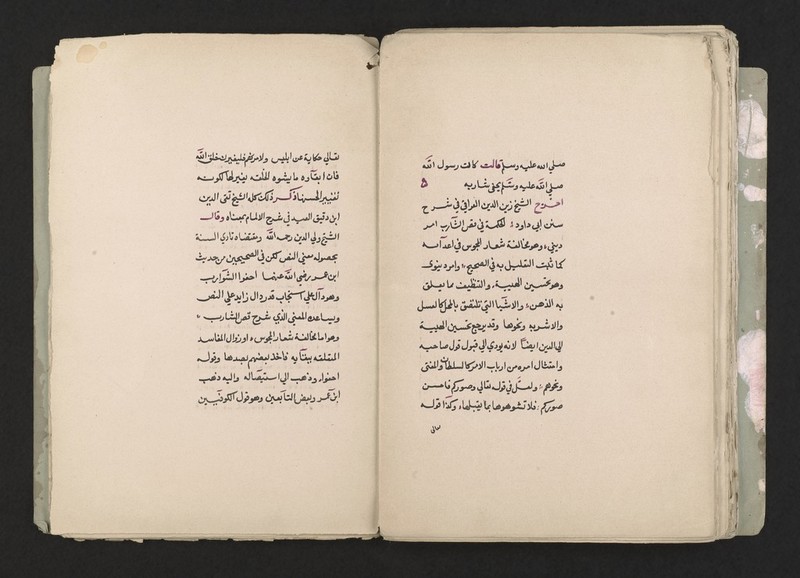 صلي الله عليه وسلم قالت كانت رسول الله
صلي الله عليه وسلم يحفي شاربه
اخرج الشيخ زين الدين العراقي في شرح
سنن ابي داود : الحكمة في قص الشارب امر
ديني وهو مخالفة شعار المجوس في اعدامه
كما ثبت التعليل به في الصحيح : وامر دينوي
وهو تحسين الهيية والتنظيف مما يعلق
به الدهن : والاشيا التي تلتصق بالمحل كالعسل
والاشربه ونحوها وقد يرجع تحسين الهيية
الي الدين ايضا لانه يودي الي قبول قول صاحبه
وامتثال امره من ارباب الامر كالسلطان والمفتي
ونحوهم : ولعل في قوله تعالي وصوركم فاحسن
صوركم : فلا تشوهوها بما يقبلها وكذا قوله
تعالي
تعالي حكاية عن ابليس ولامرنهم فليغيرن خلق الله
فان ابقاوه ما يشوه الخلقه تغيير لها لكونه
تغيير الحسنها ذكر ذلك كله الشيخ تقي الدين
ابن دقيق العيد في شرح الالمام بمعناه وقال
الشيخ ولي الدين رحمه الله ومقتضاه تادي السنة
بحصوله معني النص لكن في الصحيحين من حديث
ابن عمر رضي الله عنهما احفوا الشوارب
وهو دال علي استحباب قدر دال زايد علي النص
ويساعده المعني الذي شرح قص الشارب
وهو اما مخالفة شعار المجوس او زوال المفاسد
المتعلقه ببقايه فاخذ بعضهم بعدها وقوله
احفوا وذهب الي استيصاله واليه ذهب
ابن عمر وبعض التابعين وهو قول الكوفيين